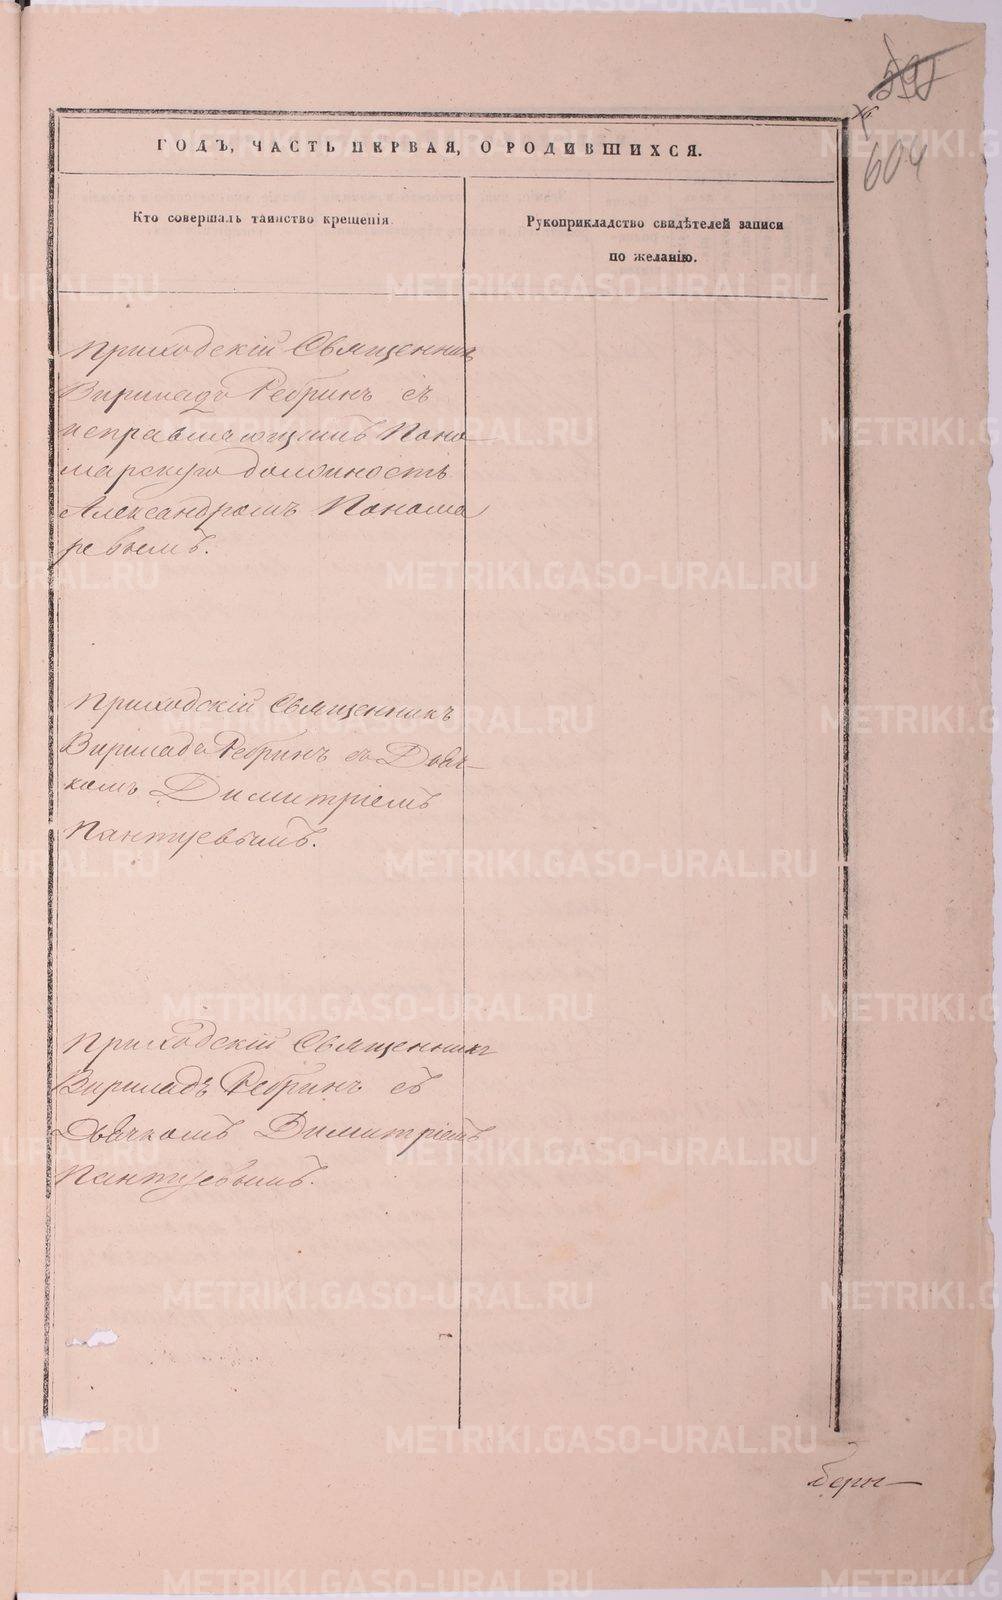 604
ГОДЪ, ЧАСТЬ ПЕРВАЯ, О РОДИВШИХСЯ.
Кто совершалъ таинство крещенія.
Рукоприкладство свидѣтелей записи
по желанію.
Приходскій Священник
Вириладъ Ребринъ съ
исправляющимъ Поно
марскую должность
Александромъ Понома
ревымъ.
Приходскій Священникъ
Вириладъ Ребринъ съ Дьяч-
комъ Димитріемъ
Пантуевымъ.
Приходскій Священникъ
Вириладъ Ребринъ съ
Дьячкомъ Димитріемъ
Пантуевымъ.
METRIKI.GASO-URAL.RU